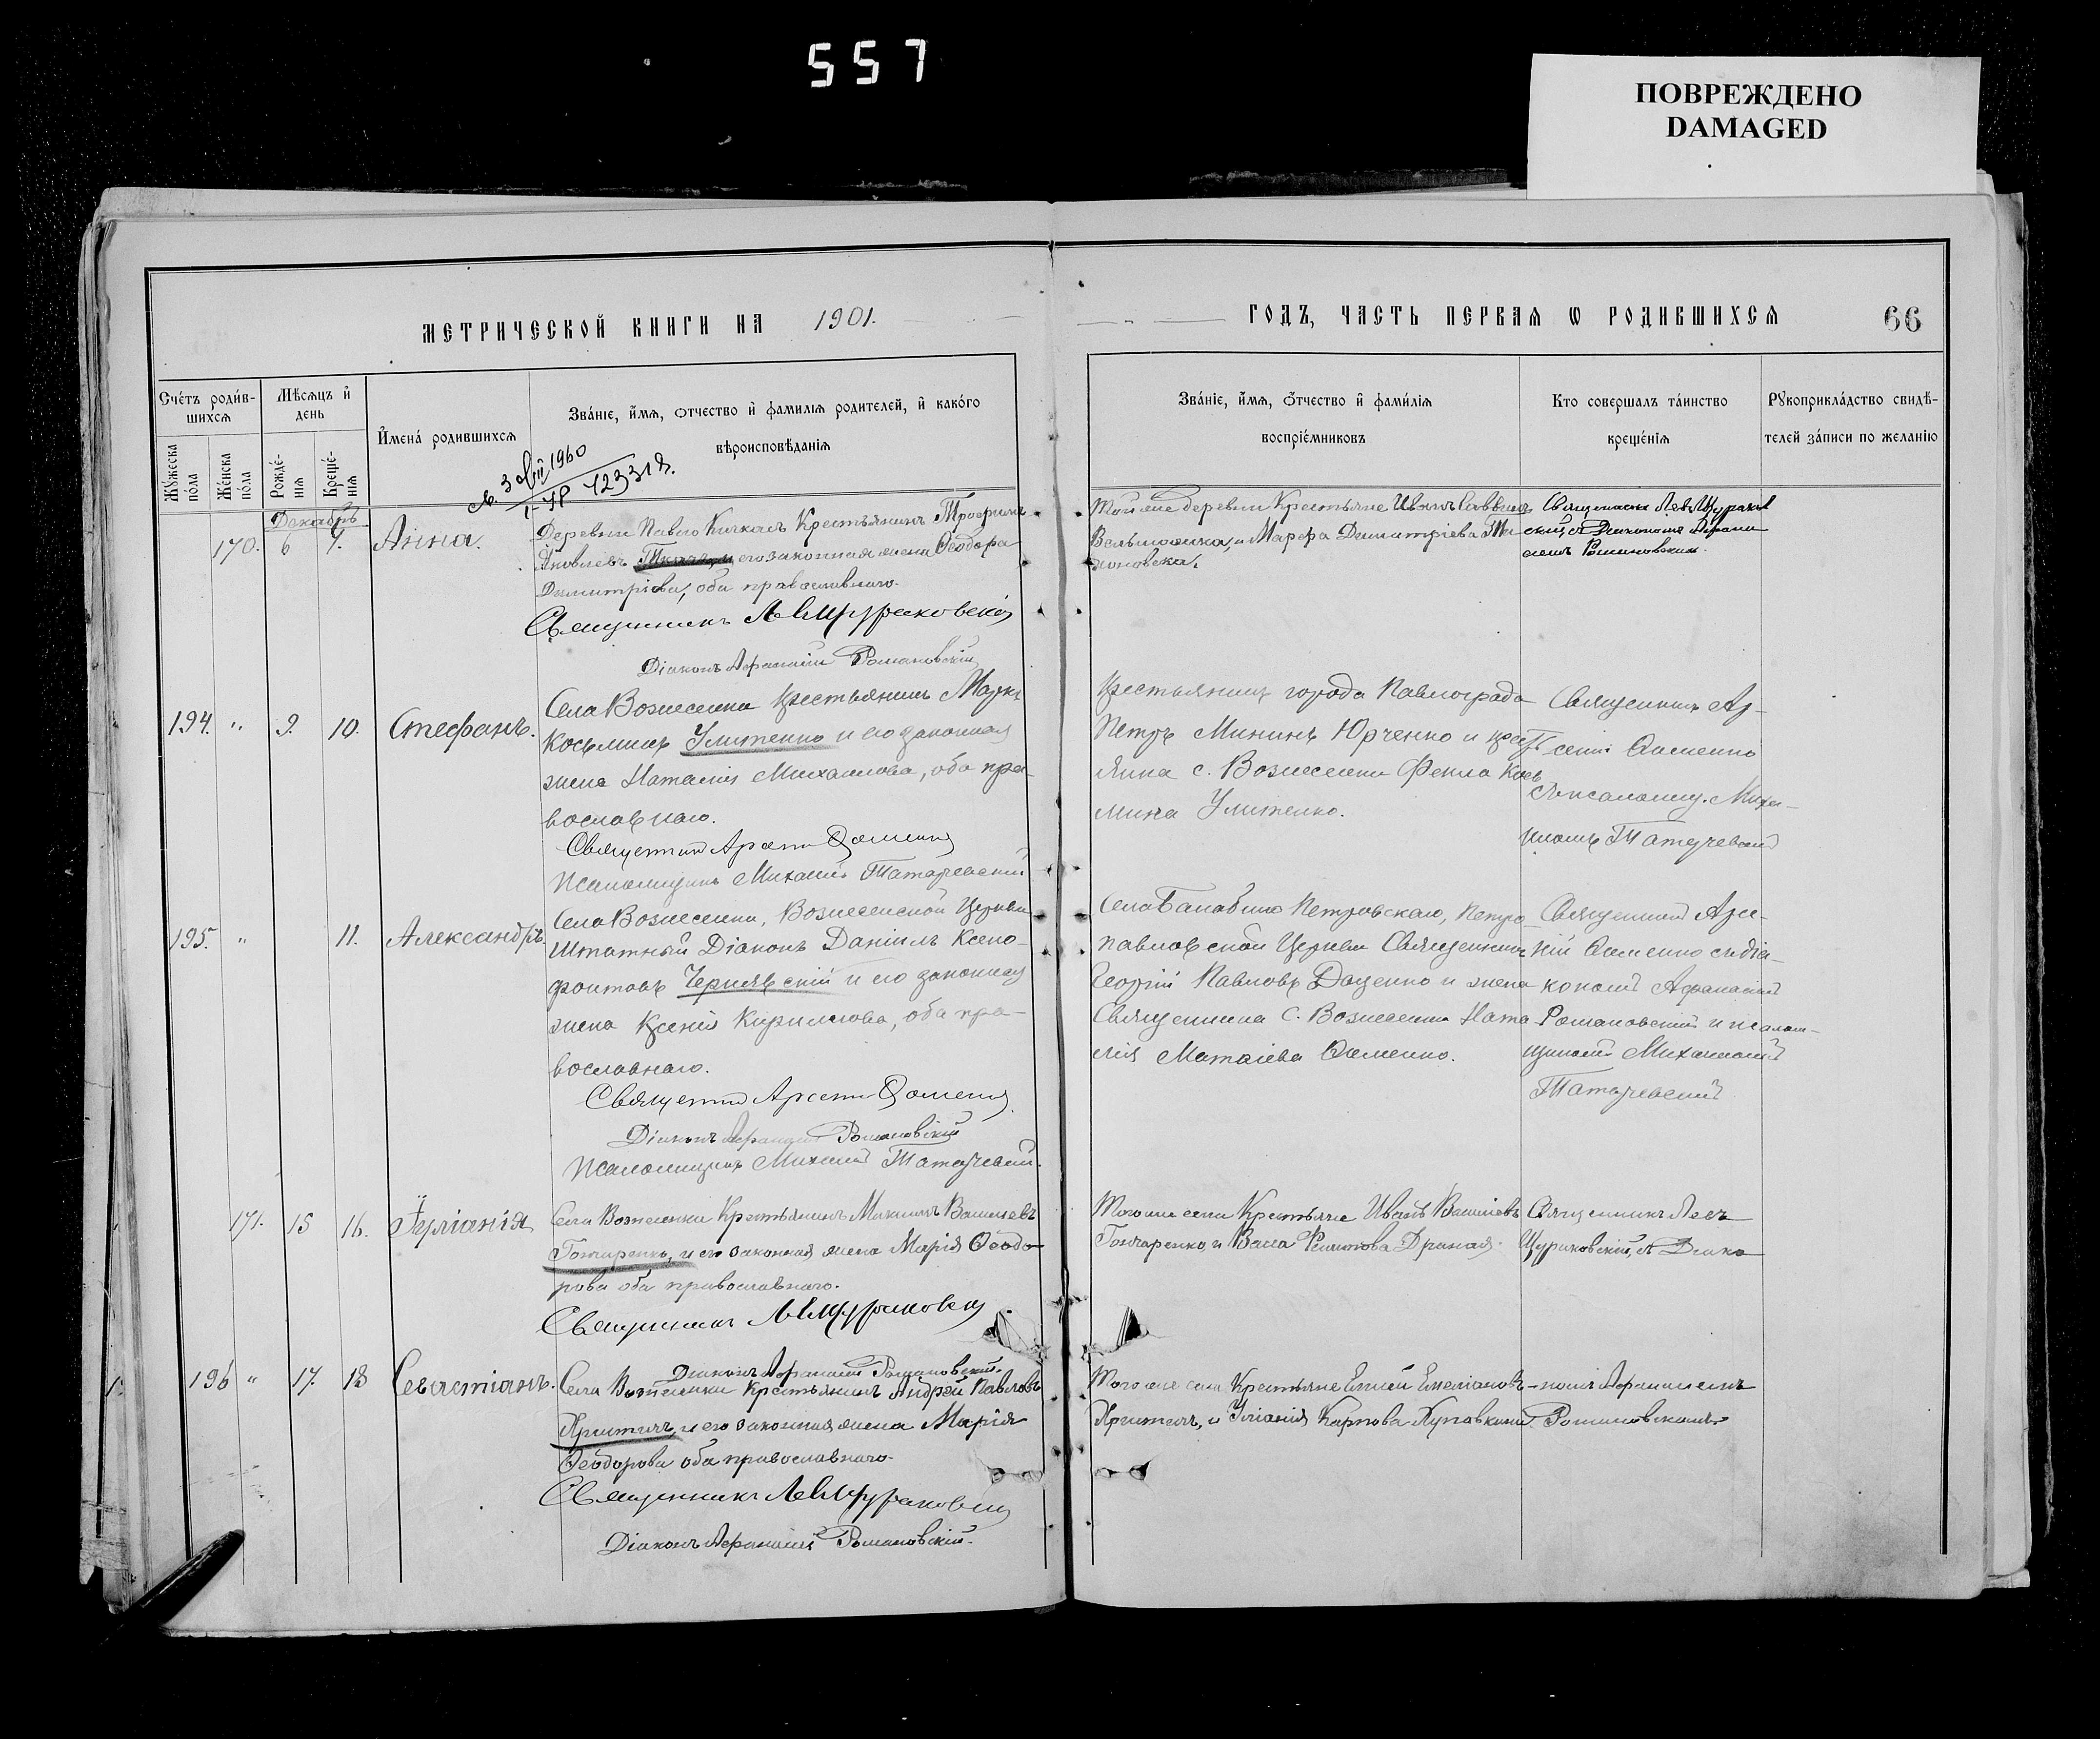 557
ПОВРЕЖДЕНО
DAMAGED
МЕТРИЧЕСКОЙ КНИГИ НА 1901.
ГОДЪ, ЧАСТЬ ПЕРВАЯ Ѡ РОДИВШИХСЯ 66
Счётъ родив-
шихся
Мѣсяцъ и
день
Имена родившихся
Званіе, имя, отчество и фамилія родителей, и какого
вѣроисповѣданія
Мужеска
пола
Женска
пола
Рожде-
нія
Креще-
нія
Званіе, имя, отчество и фамилія
воспріемниковъ
Кто совершалъ таинство
крещенія
Рукоприкладство свидѣ-
телей записи по желанію
1960
Декабрь
170. 6 9. Анна.
Деревни Павло Кичкасъ Крестьянинъ Трофимъ
Яковлевъ его законная жена Ѳеодора
Димитріева, оба православнаго.
Священникъ Левъ Щураковскій
Діаконъ Афанасій Романовскій
Той же деревни Крестьяне Иванъ Саввинъ
и Марфа Димитріева
Священникъ Левъ Щураков
скій, съ Діакономъ Афана
сіемъ Романовскимъ.
194. " 9. 10. Стефанъ.
Села Вознесенки крестьянинъ Маркъ
Косьминъ Улитенко и его законная
жена Наталія Михайлова, оба пра-
вославнаго.
Священникъ Арсеній
Псаломщикъ Михаилъ Татарчевскій
Крестьянинъ города Павлограда
Петръ Мининъ Юрченко и крест
янка с. Вознесенки Фекла Кось
мина Улитенко.
Священникъ Ар-
сеній
съ псаломщ. Миха-
иломъ Татарчевскій
195. " 11. Александръ.
Села Вознесенки, Вознесенской Церкви
Штатный Діаконъ Даніилъ Ксено-
фонтовъ Чернявскій и его законная
жена Ксенія Кириллова, оба пра-
вославнаго.
Священникъ Арсеній
Діаконъ Афанасій Романовскій
Псаломщикъ Михаилъ Татарчевскій.
Села Петровскаго, Петро-
павловской Церкви Священникъ
Георгій Павловъ Доценко и жена
Священника с. Вознесенки Ната
лія Матѳіева
Священникъ Арсе-
ній съ діа-
кономъ Афанасій
Романовскій и псалом-
щикомъ Михаиломъ
Татарчевскій
171. 15 16. Іуліанія
Села Вознесенки Крестьянинъ Максимъ Васильевъ
Гончаренко, и его законная жена Марія Ѳеодо-
рова оба православнаго.
Священникъ Левъ Щураковскій
Діаконъ Афанасій Романовскій.
Того же села Крестьяне Иванъ Васильевъ
Гончаренко и Васса Филиппова
Священникъ Левъ
Щураковскій, съ Діако-
196 " 17. 18 Севастіанъ.
Села Вознесенки Крестьянинъ Андрей Павловъ
и его законная жена Марія
Ѳеодорова оба православнаго.
Священникъ Левъ Щураковскій
Діаконъ Афанасій Романовскій.
Того же села Крестьяне Емеліановъ
и Уліанія Карпова
-номъ Афанасіемъ
Романовскимъ.